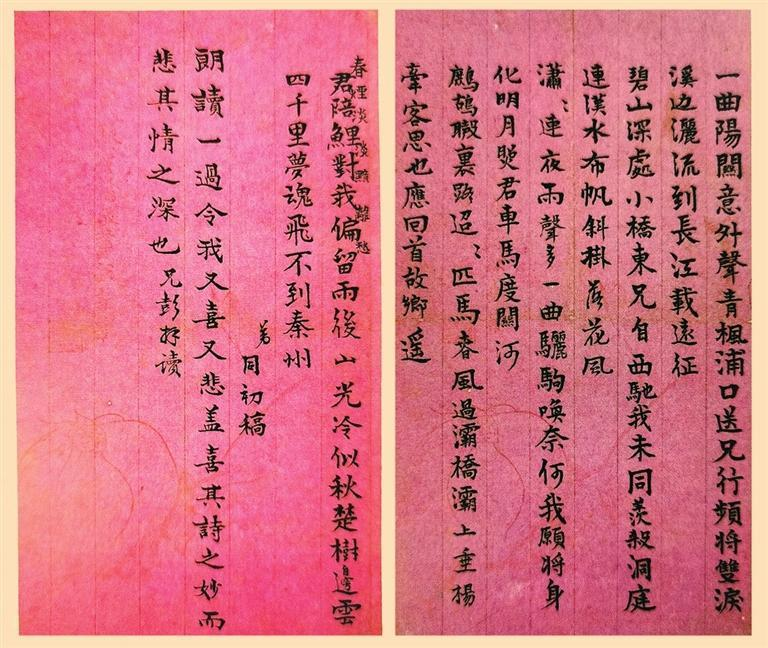 一曲陽關意外聲青楓浦口送兄行頻將雙淚
溪边灑流到長江載遠征
碧山深處小橋東兄自西馳我未同羨殺洞庭
連漢水布帆斜掛落花風
瀟〻連夜雨聲多一曲驪駒喚奈何我願將身
化明月君車馬度關河
鷓鴣裏路迢〻匹馬春風過灞橋灞上垂楊
牽客思也應回首故鄉遥
春煙淡淡黯離愁
君陪鯉對我偏留雨後山光冷似秋楚樹邊雲
四千里夢魂飛不到秦州
弟同初稿
朗讀一過令我又喜又悲盖喜其詩之妙而
悲其情之深也兄彭读